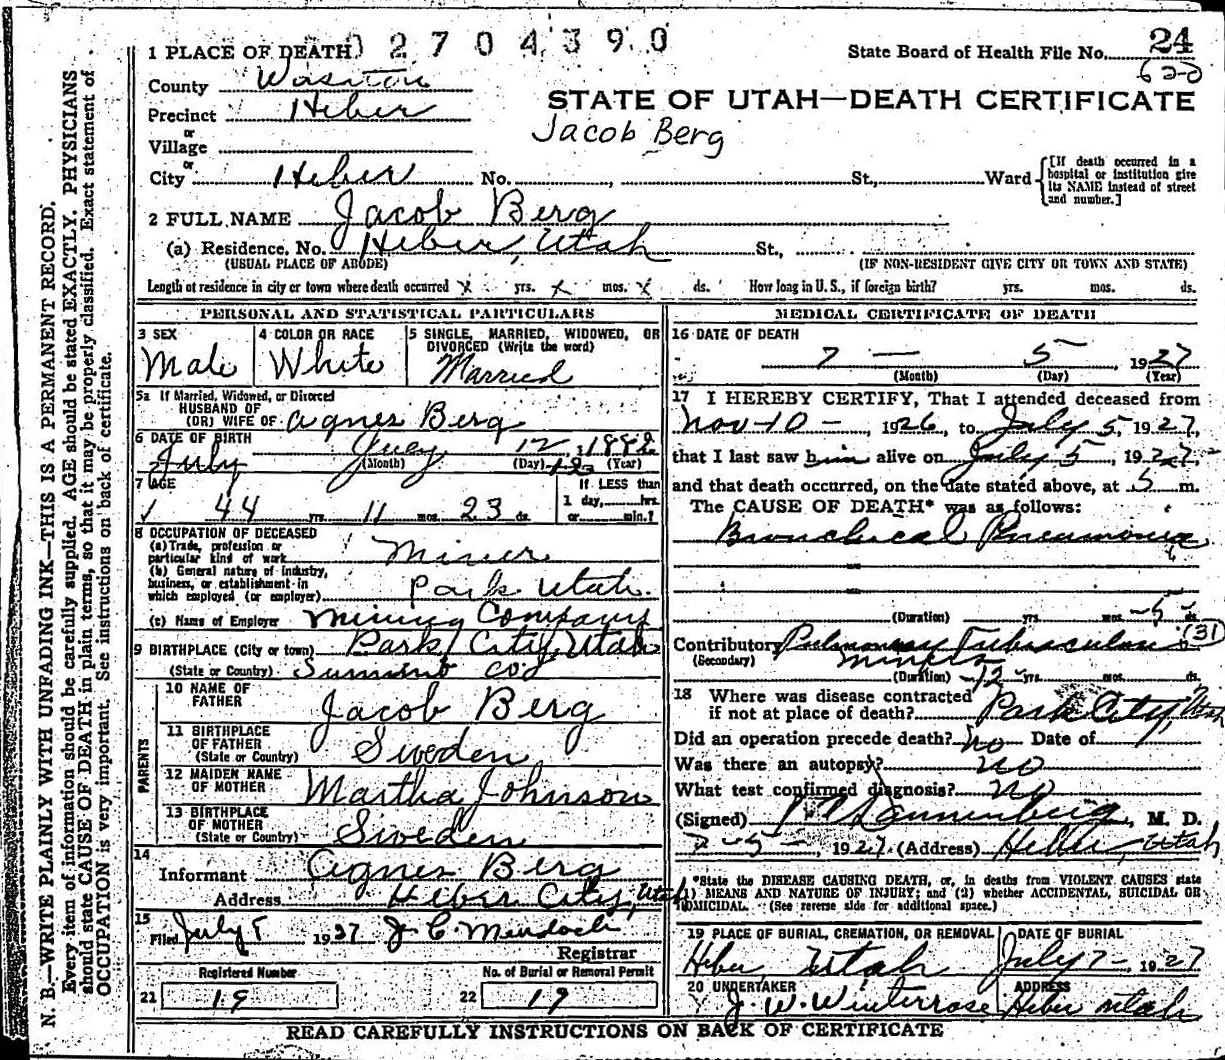 1 PLACE OF DEATH 02704390
State Board of Health File No. 24
620
County Wasatch
STATE OF UTAH—DEATH CERTIFICATE
Precinct Heber
Jacob Berg
or
Village
or
City Heber No. , St., Ward [If death occurred in a hospital or institution give its NAME instead of street and number.]
2 FULL NAME Jacob Berg
(a) Residence. No. Heber, Utah St.,
(USUAL PLACE OF ABODE) (IF NON-RESIDENT GIVE CITY OR TOWN AND STATE)
Length of residence in city or town where death occurred x yrs. x mos. x ds. How long in U. S., if foreign birth? yrs. mos. ds.
PERSONAL AND STATISTICAL PARTICULARS
3 SEX
Male
4 COLOR OR RACE
White
5 SINGLE, MARRIED, WIDOWED, OR DIVORCED (Write the word)
Married
5a If Married, Widowed, or Divorced
HUSBAND OF
(OR) WIFE OF Agnes Berg
6 DATE OF BIRTH July 12, 1882
July (Month) (Day) (Year)
7 AGE
44 yrs. 11 mos. 23 ds.
If LESS than
1 day, hrs.
or min.?
8 OCCUPATION OF DECEASED
(a) Trade, profession or
particular kind of work Miner
(b) General nature of industry,
business, or establishment in
which employed (or employer) Park Utah
(c) Name of Employer Mining Company
9 BIRTHPLACE (City or town) Park City, Utah
(State or Country) Summit Co
PARENTS
10 NAME OF
FATHER Jacob Berg
11 BIRTHPLACE
OF FATHER
(State or Country) Sweden
12 MAIDEN NAME
OF MOTHER Martha Johnson
13 BIRTHPLACE
OF MOTHER
(State or Country) Sweden
14
Informant Agnes Berg
Address Heber City, Utah
15
Filed July 5 1927
Registrar
Registered Number
21 19
No. of Burial or Removal Permit
22 19
MEDICAL CERTIFICATE OF DEATH
16 DATE OF DEATH
7 — 5 1927
(Month) (Day) (Year)
17 I HEREBY CERTIFY, That I attended deceased from
Nov-10 -, 1926, to July 5, 1927,
that I last saw him alive on July 5, 1927
and that death occurred, on the date stated above, at 5 m.
The CAUSE OF DEATH* was as follows:
Bronchical Pneumonia
(Duration) yrs. mos. -5- ds.
Contributory Pulmonary Tuberculosis (31)
(Secondary) Miners
(Duration) -12- yrs. mos. ds.
18 Where was disease contracted
if not at place of death? Park City, Utah
Did an operation precede death? No Date of
Was there an autopsy? no
What test confirmed diagnosis? no
(Signed) Dannenberg, M. D.
7-5-, 1927 (Address) Heber, Utah
*State the DISEASE CAUSING DEATH, or, in deaths from VIOLENT CAUSES state
(1) MEANS AND NATURE OF INJURY; and (2) whether ACCIDENTAL, SUICIDAL OR
HOMICIDAL. (See reverse side for additional space.)
19 PLACE OF BURIAL, CREMATION, OR REMOVAL
Heber Utah
DATE OF BURIAL
July 7-, 1927
20 UNDERTAKER
J. W. Winterrose
ADDRESS
Heber Utah
READ CAREFULLY INSTRUCTIONS ON BACK OF CERTIFICATE
N. B.—WRITE PLAINLY WITH UNFADING INK—THIS IS A PERMANENT RECORD.
Every item of information should be carefully supplied. AGE should be stated EXACTLY. PHYSICIANS
should state CAUSE OF DEATH in plain terms, so that it may be properly classified. Exact statement of
OCCUPATION is very important. See instructions on back of certificate.